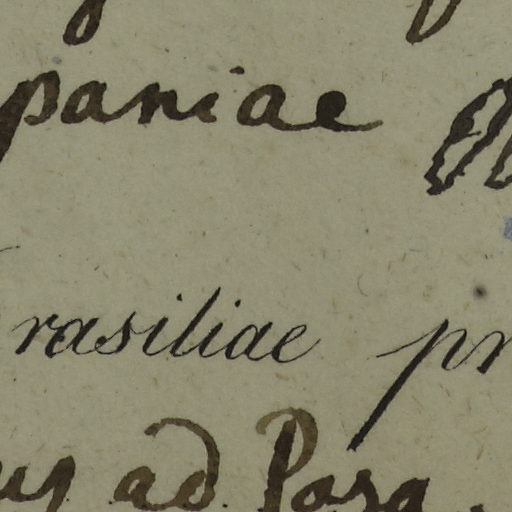 paniae
rasiliae pr
ad Para.